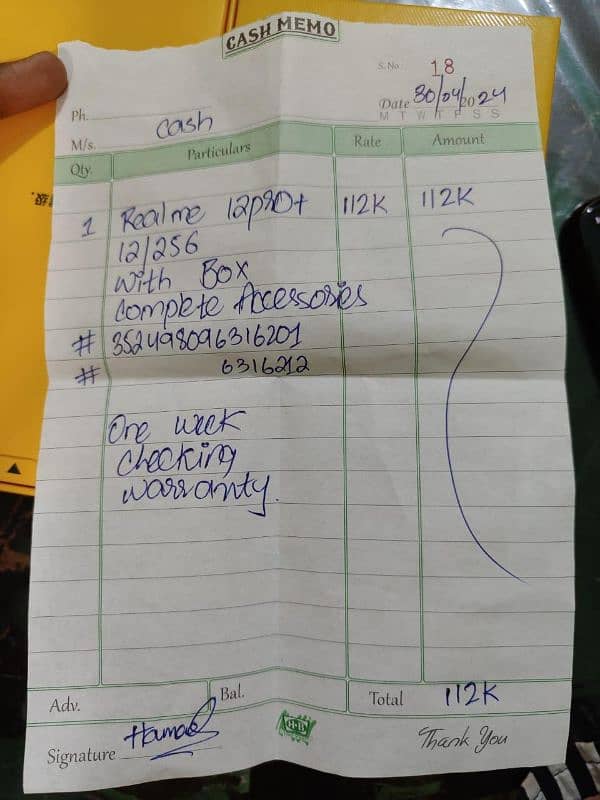 CASH MEMO
S.No. 18
Ph.
Date 30/04/2024
M T W T F S S
M/s. Cash
Qty. Particulars Rate Amount
1 Realme 12pro+ 112K 112K
12/256
with Box
Complete Accessories
# 352498096316201
# 6316212
One week
checking
warranty.
Adv. Bal. Total 112K
Signature
Thank You